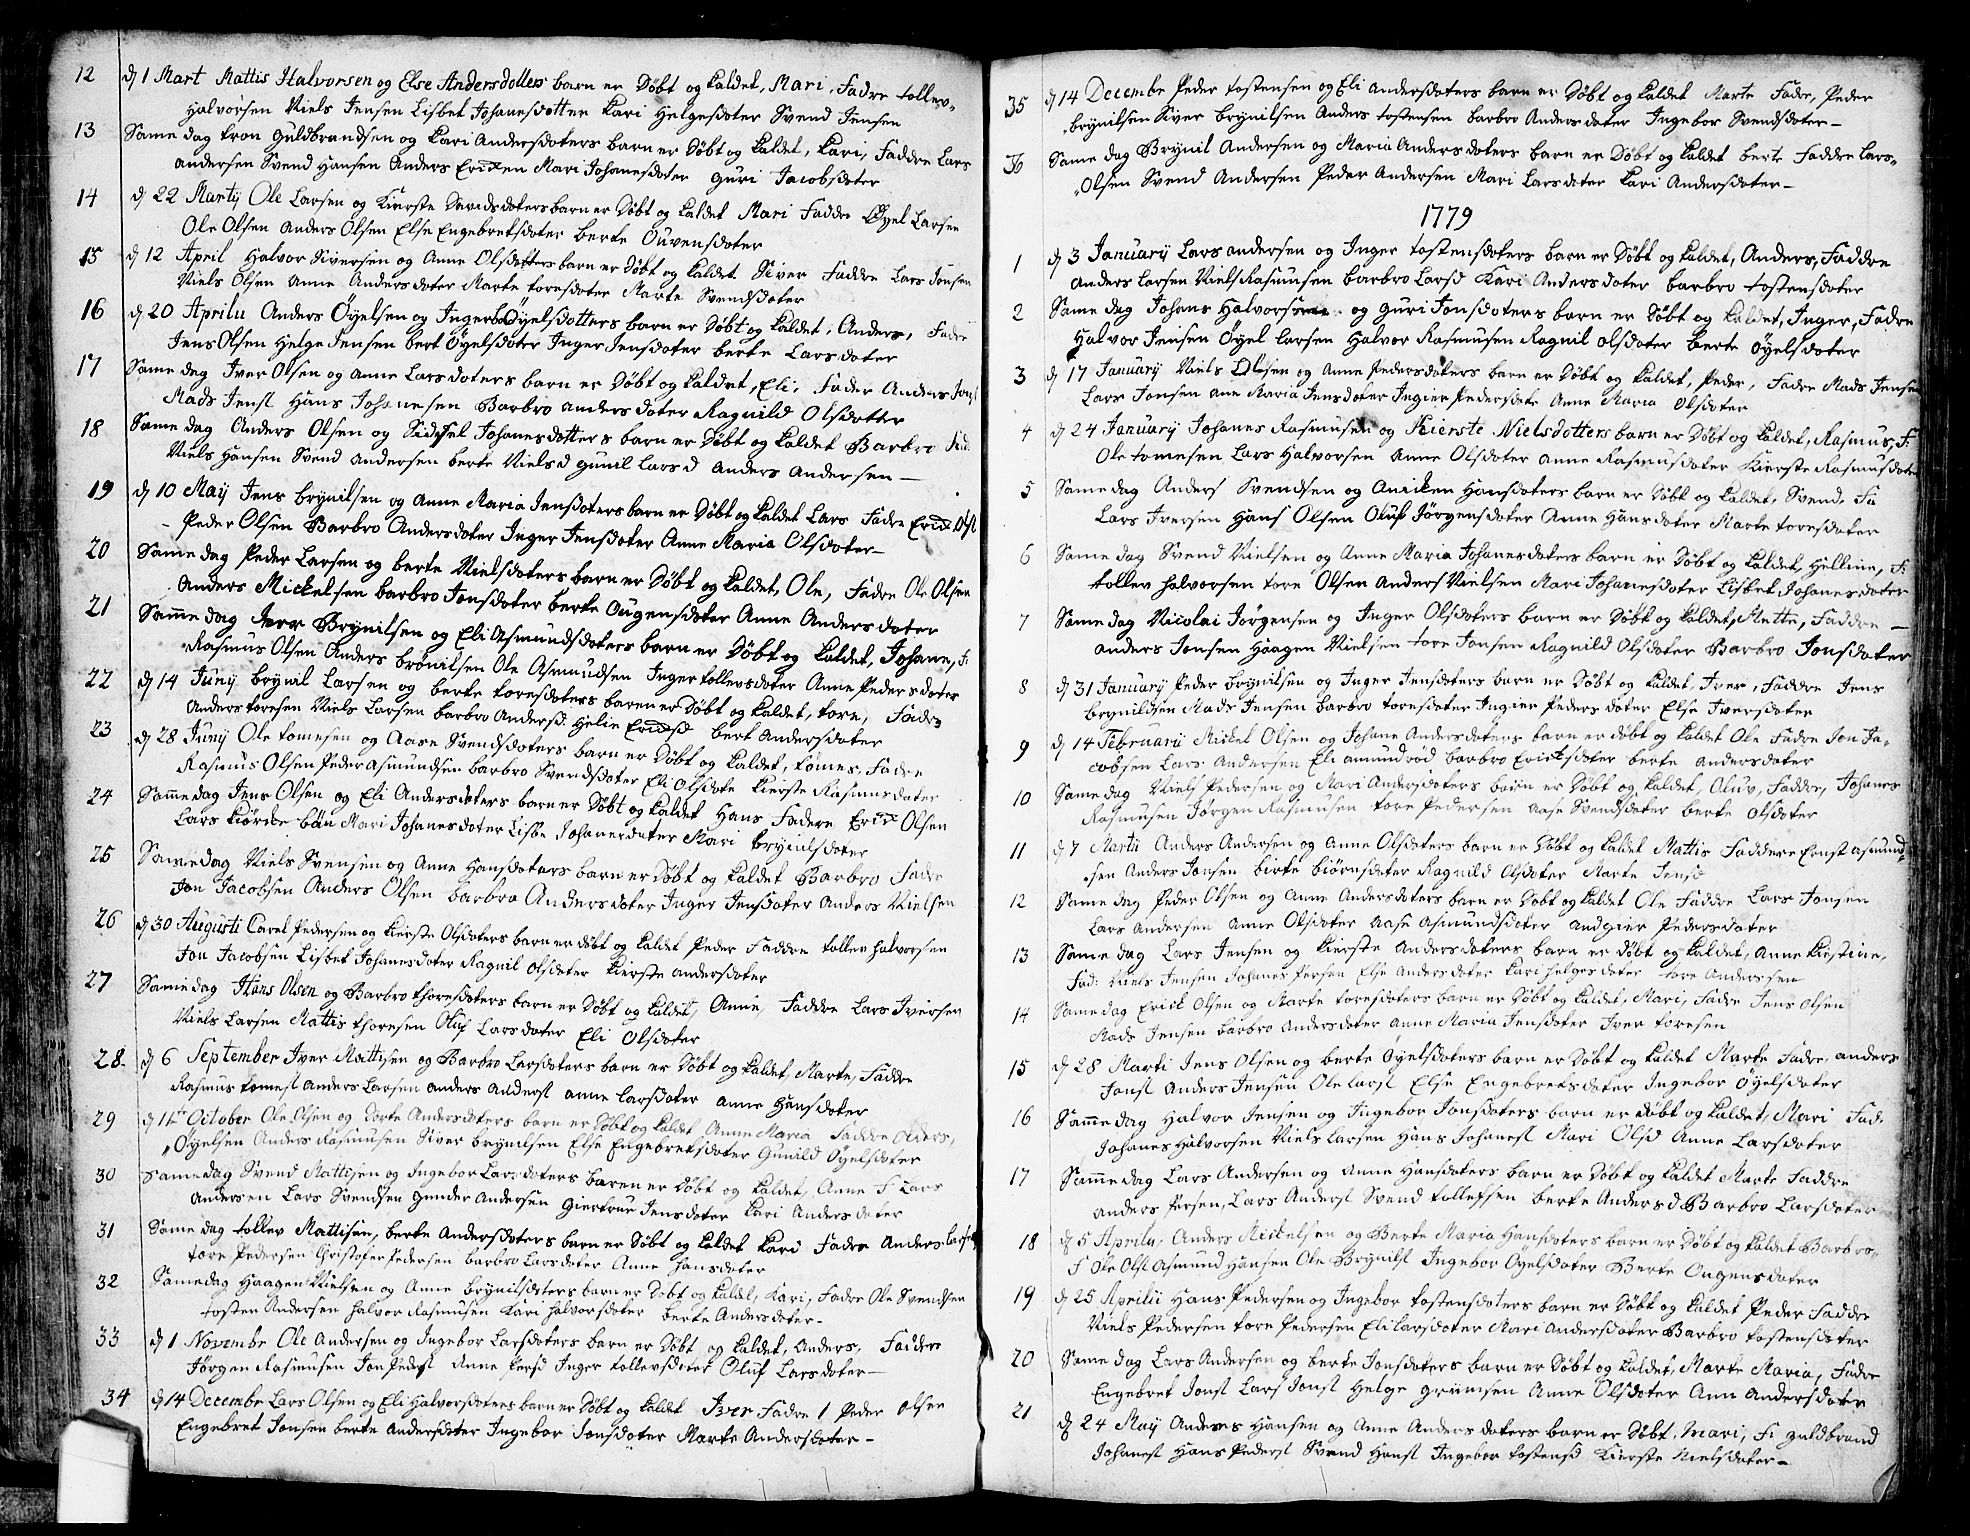 12 d 1 Mart Mattis Halvorsen og Else Andersdotters barn er Døbt og kaldet, Mari, Fadre tollev-
Halvorsen Niels Jensen Lisbet Johanesdotter Kari Helgesdoter Svend Jensen
13 Same dag tron Guldbrandsen og Kari Andersdoters barn er Døbt og kaldet, Kari, Faddre Lars
andersen Svend Hansen Anders Ericksen Mari Johanesdoter Guri Jacobsdoter
14 d 22 Martij Ole Larsen og Kierste Davidsdotersbarn er Døbt og kaldet Mari Faddre Øyel Larsen
Ole Olsen Anders Olsen Else Engebretsdoter berte Ouvensdoter
15 d 12 April Halvor Siversen og Anne Olsdotters barn er Døbt og kaldet Siver Faddre Lars Jonsen
Niels Olsen Anne Andersdoter Marte toresdoter Marte Svendsdoter
16 d 20 Aprilu Anders Öyelsen og Ingerbor Öyelsdotters barn er Døbt og kaldet, Anders, Fadre
Jens Olsen Helge Jensen bert Öyelsdoter Inger Jensdoter berte Larsdoter
17 Same dag Iver Olsen og anne Larsdoters barn er Døbt og kaldet, Eli, Fadre Anders Jonsl
Mads Jensl Hans Johanesen Barbro andersdoter Ragnild Olsdotter
18 Same dag Anders Olsen og Sidsel Johanesdotters barn er Døbt og kaldet Barbro Fad:
Niels Hansen Svend andersen berte Nielsd gunil Larsd Anders Andersen —
19 d 10 Maÿ Jens brynilsen og Anne Maria Jensdotersbarn er Døbt og kaldet Lars Fadre Erick Olsl
- Peder Olsen Barbro Andersdoter Inger Jensdoter Anne Maria Olsdoter-
20 Same dag Peder Larsen og berte Nielsdoters barn er Døbt og kaldet, Ole, Fadre Ole Olsen
Anders Mickelsen barbro Jonsdoter berte Ougensdoter Anne Andersdoter
21 Samme dag Iver Brynilsen og Eli Asmundsdoters barn er Døbt og kaldet, Johane, F:
Rasmus Olsen Anders brönilsen Ole Asmundsen Inger tollevsdoter Anne Pedersdoter
22 d 14 Junij brynil Larsen og berte toresdoters baren er Døbt og kaldet, tore, Fadre
Anders toresen Niels Larsen barbro Andersd. Helie Ericksd bert Andersdoter
23 d 28 Junij Ole tomesen og Aase Svendsdoters barn er Døbt og kaldet, tomes, Fadre
Rasmus Olsen Peder Asmundsen barbro Svendsdoter Eli Olsdote Kierste Rasmusdoter
24 Samme dag Jens Olsen og Eli Andersdoters barn er Døbt og kaldet Hans Fadere Erick Olsen
Lars Mari Johanesdoter Lisbe Johanesdoter Mari brynilsdoter
25 Same dag Niels Svensen og Anne Hansdoters barn er Døbt og kaldet Barbro Fadre
Jon Jacobsen Anders Olsen barbro Andersdoter Inger Jensdoter Anders Nielsen
26 d 30 Augusti Carel Pedersen og Kierste Olsdoters barn er døbt og kaldet Peder Faddre tollev halvorsen
Jon Jacobsen Lisbet Johanesdoter Ragnil olsdoter Kierste andersdoter
27 Same dag Hans Olsen og Barbro thoresdoters barn er Døbt og kaldet, Anne, Faddre Lars Iversen
Niels Larsen Mattis thoresen Oluf Larsdoter Eli Olsdoter
28 d 6 September Iver Mattisen og Barbro Larsdoters barn er Døbt og kaldet, Marte, Faddre
Rasmus tomesl Anders Larsen anders andersl anne larsdoter anne Hansdoter
29 d 11 October Ole Olsen og Dorte Andersdoters barn er Døbt og kaldet Anne Maria Faddre Anders,
Öyelsen Anders Rasmusen Siver brynilsen Else Engebretsdoter Gunild Öyelsdoter
30 Same dag Svend Mattisen og Ingebor Larsdoters baren er Døbt og kaldet, Anne F Lars
Andersen Lars Svendsen Gunder Andersen Giertrue Jensdoter Kari Andersdoter
31 Same dag tollev Mattisen, berte Andersdoters barn er Døbt og kaldet Kari Fadre Anders larsen
tore Pedersen Christofer Pedersen barbro Larsdoter Anne Hansdoter
32 Same dag Haagen Nielsen og Anne Brynilsdoters barn er Døbt og kaldet, Kari, Fadre Ole Svendsen
tosten Andersen halvor Rasmusen Kari halvorsdoter berte Andersdoter-
33 d 1 Novembe Ole Andersen og Ingebor Larsdoters barn er Døbt og kaldet, Anders, Faddre
Jörgen Rasmusen Jon Pedersl Anne persd Inger tollevsdoter Oluf Larsdoter —
34 d 14 Decembe Lars Olsen og Eli Halvorsdoters barn er Døbt og kaldet Iver Fadre Peder olsen
Engebret Jonsen berte Andersdoter Ingebor Jonsdoter Marte Andersdoter-
35 d 14 Decembe Peder tostensen og Eli Andersdoters barn er Døbt og kaldet Marte Fadre, Peder
brynilsen Siver brynilsen Anders tostensen barbro Andersdoter Ingebor Svendsdoter-
36 Same dag Brynil Andersen og Maria Andersdoters barn er Døbt og kaldet berte Faddre Lars-
Olsen Svend Andersen Peder Andersen Mari Larsdoter Kari Andersdoter-
1779
1 d 3 Januarij Lars andersen og Inger tostensdoters barn er Døbt og kaldet, Anders, Faddre
Anders Larsen Niels Rasmusen barbro Larsd Kari Andersdoter barbro tostensdoter
2 Same dag Johans Halvorsens og Guri Jonsdoters barn er Døbt og kaldet, Inger, Fadre
Halvor Jensen Öyel Larsen Halvor Rasmusen Ragnil olsdoter berte öyelsdoter
3 d 17 Januarij Niels Olsen og Anne Pedersdoters barn er Døbt og kaldet, Peder, Fadre Mads Jensen
Lars Jonsen ane Maria Jensdoter Ingier Pedersdote Anne Maria Olsdoter
4 d 24 Januarij Johanes Rasmusen og Kierste Nielsdotters barn er Døbt og kaldet, Rasmus, F:
Ole tomesen Lars Halvorsen Anne Olsdoter anne Rasmusdoter Kierste Rasmusdoter
5 Same dag Anders Svendsen og Anicken Hansdoters barn er Døbt og kaldet, Svend, Fa
Lars Iversen Hans Olsen Oluf Jörgensdoter Anne Hansdoter Marte toresdoter
6 Same dag Svend Nielsen og Anne Maria Johanesdoters barn er Døbt og kaldet, Helline, F:
tollev halvorsen tore Olsen Anders Nielsen Mari Johanesdoter Lisbet Johanesdoter
7 Same dag Nicolai Jörgensen og Inger Olsdoters barn er Døbt og kaldet, Mette, Faddre —
anders Jonsen Haagen Nielsen tore Jonsen Ragnild Olsdoter Barbro Jonsdoter
8 d 31 Januarij Peder brynilsen og Inger Jensdoters barn er Døbt og kaldet, Iver, Faddre Jens
brynildsen Mads Jensen barbro toresdoter Ingier Pedersdoter Else Iversdoter
9 d 14 Februarij Mickel Olsen og Johane Andersdoters barn er døbt og kaldet Ole Fadre Jon Ja-
cobsen Lars Andersen Eli amundröd barbro Ericksdoter berte andersdoter
10 Same dag Niels Pedersen og Mari Andersdoters baren er Døbt og kaldet, Oluv, Faddre, Johanes
Rasmusen Jörgen Rasmusen tore Pedersen aase Svendsdoter berte olsdoter
11 d 7 Martii Anders Andersen og Anne Olsdoters barn er Døbt og kaldet Mattis Faddere Ernst asmund-
sen Anders Jonsen birte biörnsdoter Ragnild Olsdoter Marte Jensd
12 Same dag Peder Olsen og Anne Andersdoters barn er Døbt og kaldet Ole Faddre Lars Jonsen
Lars Andersen Anne Olsdoter Aase Asmundsdoter andgier Pedersdoter
13 Same dag Lars Jensen og Kierste Andersdoters barn er døbt og kaldet, Anne Kiestine,
Fad: Niels Jensen Johanes Persen Else Andersdoter Kari helgesdoter tore Anderssen
14 Same dag Erick Olsen og Marte toresdoters barn er Døbt og kaldet, Mari, Fadre Jens Olsen
Mads Jensen barbro Andersdoter Anne Maria Jensdoter Iver toresen
15 d 28 Marti Jens Olsen og berte Öyelsdoters barn er Døbt og kaldet Marte Fadre anders
Jonsl Anders Jensen Ole larsl Else Engebretsdoter Ingebor Öyelsdoter
16 Samme dag Halvor Jensen og Ingebor Jonsdoters barn er døbt og kaldet, Mari Fad.
Johanes Halvorsen Niels Larsen Hans Johanesl Mari Olsd Anne Larsdoter
17 Samme dag Lars Andersen og Anne Hansdoters barn er Døbt og kaldet Marte Faddre
Anders Persen, Lars Andersl Svend tollefsen berte Andersd Barbro Larsdoter
18 d 5 Aprilu, Anders Mickelsen og Berte Maria Hansdoters barn er Døbt og kaldet Barbro-
F Ole Olsl Asmund Hansen Ole Brynilsl Ingebor Öyelsdoter Berte Ougensdoter
19 d 25 Aprilii Hans Pedersen og Ingebor tostensdoters barn er Døbt og kaldet Peder Faddre
Niels Pedersen tore Pedersen Eli Larsdoter Mari Andersdoter Barbro tostensdoter
20 Same dag Lars Andersen og berte Jonsdoters barn er Døbt og kaldet, Marte Maria, Fadre
Engebret Jonsl Lars Jonsl Helge grimsen Anne Olsdoter Ann Andersdoter
21 d 24 Maÿ Anders Hansen og Anne Andersdoters barn er Døbt, Mari, F: guldbrand
Johanesl Hans Pedersl Svend Hansl Ingebor tostensd Kierste Nielsdoter-